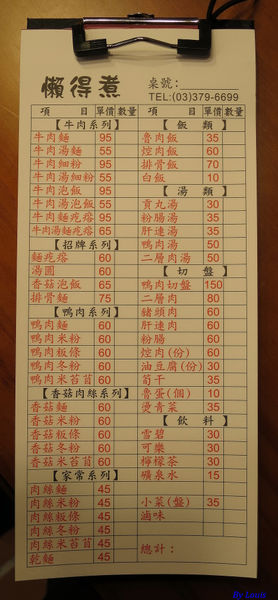 懶得煮
桌號：
TEL:(03)379-6699
項 目 單價 數量
【牛肉系列】
牛肉麵 95
牛肉湯麵 55
牛肉細粉 95
牛肉湯細粉 55
牛肉泡飯 95
牛肉湯泡飯 55
牛肉麵疙瘩 95
牛肉湯麵疙瘩 65
【招牌系列】
麵疙瘩 60
湯圓 60
香菇泡飯 65
排骨麵 75
【鴨肉系列】
鴨肉麵 60
鴨肉米粉 60
鴨肉粄條 60
鴨肉冬粉 60
鴨肉米苔苜 60
【香菇肉絲系列】
香菇麵 60
香菇米粉 60
香菇粄條 60
香菇冬粉 60
香菇米苔苜 60
【家常系列】
肉絲麵 45
肉絲米粉 45
肉絲粄條 45
肉絲冬粉 45
肉絲米苔苜 45
乾麵 45
項 目 單價 數量
【飯 類】
魯肉飯 35
焢肉飯 60
排骨飯 70
白飯 10
【湯 類】
貢丸湯 30
粉腸湯 35
肝連湯 35
鴨肉湯 50
二層肉湯 50
【切 盤】
鴨肉切盤 150
二層肉 80
豬頭肉 60
肝連肉 60
粉腸 60
焢肉(份) 60
油豆腐(份) 30
筍干 35
魯蛋(個) 10
燙青菜 35
【飲 料】
雪碧 30
可樂 30
檸檬茶 30
礦泉水 15
小菜(盤) 35
滷味
總計：